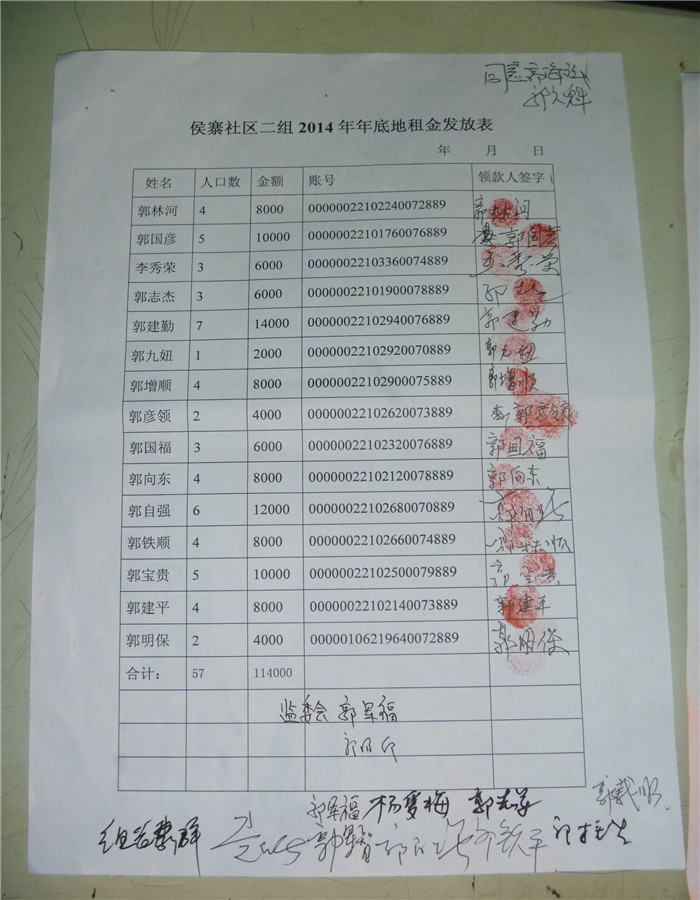 同意
侯寨社区二组2014年年底地租金发放表
年 月 日
姓名 人口数 金额 账号 领款人签字
郭林河 4 8000 00000022102240072889 郭林河
郭国彦 5 10000 00000022101760076889 郭国彦
李秀荣 3 6000 00000022103360074889 李秀荣
郭志杰 3 6000 00000022101900078889 郭
郭建勤 7 14000 00000022102940076889 郭建勤
郭九妞 1 2000 00000022102920070889 郭九妞
郭增顺 4 8000 00000022102900075889 郭增顺
郭彦领 2 4000 00000022102620073889 郭彦领
郭国福 3 6000 00000022102320076889 郭国福
郭向东 4 8000 00000022102120078889 郭向东
郭自强 6 12000 00000022102680070889
郭铁顺 4 8000 00000022102660074889 郭铁顺
郭宝贵 5 10000 00000022102500079889 郭宝贵
郭建平 4 8000 00000022102140073889 郭建平
郭明保 2 4000 00000106219640072889 郭明保
合计: 57 114000
监委会 郭军福
郭军福 杨梦梅